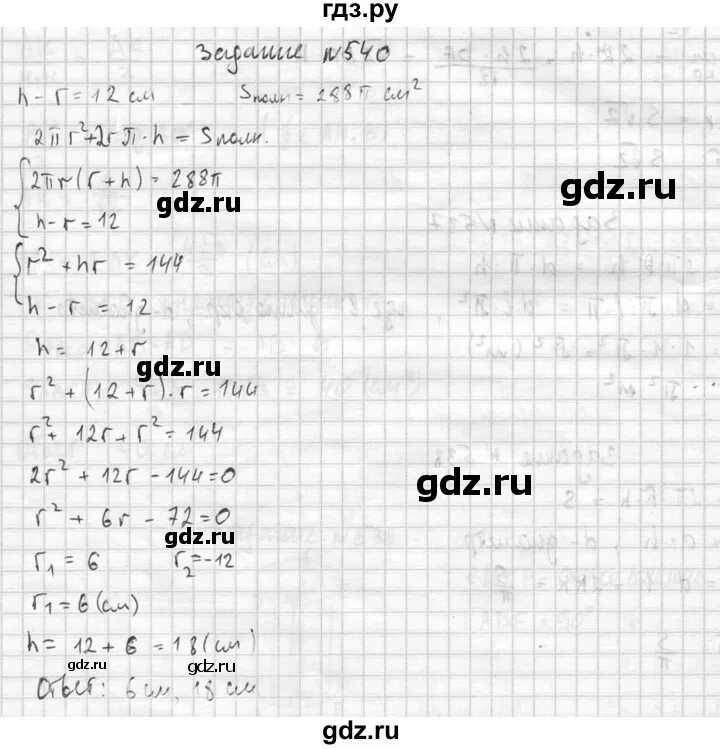 гдз.ру
Задание №540
h - r = 12 см    Sполн = 288π см²
2πr² + 2rπ·h = Sполн.
2πr(r + h) = 288π
gdz.ru
gdz.ru
h - r = 12
r² + hr = 144
h - r = 12
h = 12 + r
gdz.ru
r² + (12 + r)·r = 144
r² + 12r + r² = 144
2r² + 12r - 144 = 0
gdz.ru
r² + 6r - 72 = 0
gdz.ru
r₁ = 6    r₂ = -12
r₁ = 6 (см)
h = 12 + 6 = 18 (см)
gdz.ru
gdz.ru
Ответ: 6 см, 18 см
gdz.ru
gdz.ru